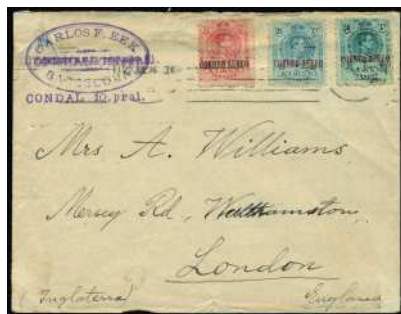 CARLOS F. EEK
BARCELONA
CONDAL 10, pral.
CORREO AEREO
CORREO AEREO
CORREO AEREO
Mrs A. Williams
Mersey Rd., Walthamstow,
London
(Inglaterra) England